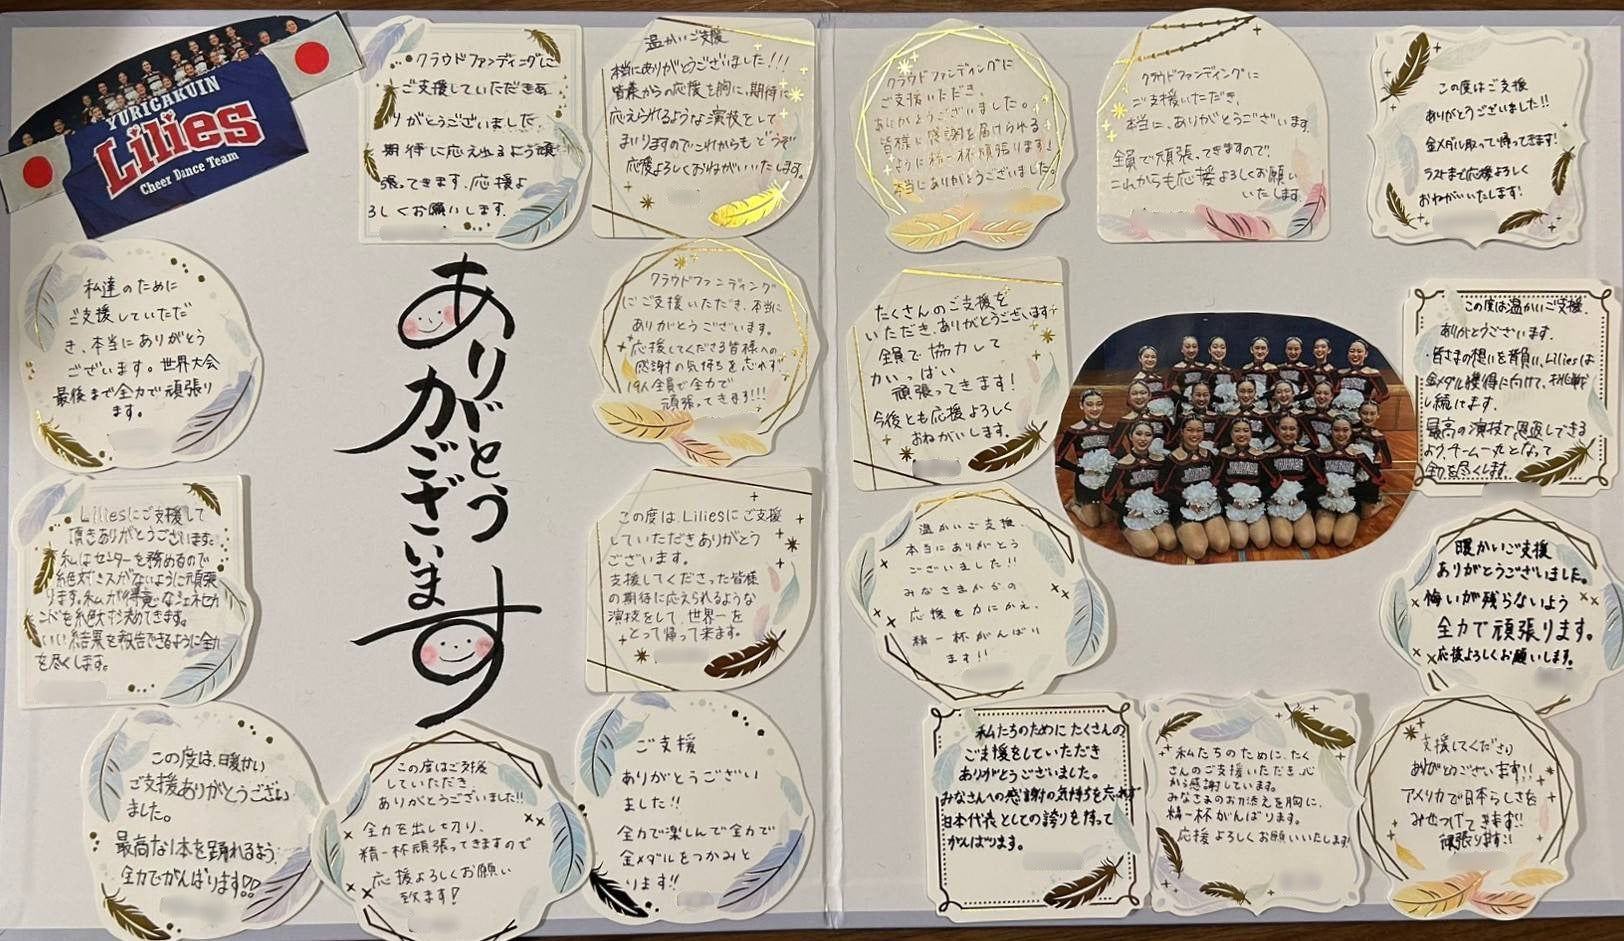 YURIGAKUIN
Lilies
Cheer Dance Team
クラウドファンディングに
ご支援していただきあ
りがとうございました。
期待に応えれるよう頑
張ってきます。応援よ
ろしくお願いします。
温かいご支援
本当にありがとうございました!!!
皆様からの応援を胸に、期待に
応えられるような演技をして
まいりますのでこれからもどうぞ
応援よろしくおねがいいたします。
私達のために
ご支援していただ
き、本当にありがとう
ございます。世界大会
最後まで全力で頑張り
ます。
ありがとう
ございます
クラウドファンディング
にご支援いただき、本当に
ありがとうございます。
応援してくださる皆様への
感謝の気持ちを忘れず
19人全員で全力で
頑張ってきます!!!
Liliesにご支援して
頂きありがとうございます。
私はセンターを務めるので
絶対ミスがないように頑張
ります。私が得意なシェネセカ
ンドを絶対決めてきます。
いい結果を報告できるように全力
を尽くします。
この度は、Liliesにご支援
していただきありがとう
ございます。
支援してくださった皆様
の期待に応えられるような
演技をして、世界一を
とって帰って来ます。
この度は、暖かい
ご支援ありがとうござい
ました。
最高な1本を踊れるよう、
全力でがんばります!!
この度はご支援
していただき
ありがとうございました!!
全力を出し切り、
精一杯頑張ってきますので
応援よろしくお願い
致します!
ご支援
ありがとうござい
ました!!
全力で楽しんで全力で
金メダルをつかみと
ります!!
クラウドファンディングに
ご支援いただき、
ありがとうございました。
皆様に感謝を届けられる
ように精一杯頑張ります!
本当にありがとうございました。
クラウドファンディングに
ご支援いただき、
本当に、ありがとうございます。
全員で頑張ってきますので、
これからも応援よろしくお願い
いたします。
この度はご支援
ありがとうございました!!
金メダル取って帰ってきます!
ラストまで応援よろしく
おねがいいたします!
たくさんのご支援を
いただき、ありがとうございます
全員で協力して
力いっぱい
頑張ってきます!
今後とも応援よろしく
おねがいします。
この度は温かいご支援、
ありがとうございます。
皆さまの想いを背負い、Liliesは
金メダル獲得に向けて、挑戦
し続けます。
最高の演技で恩返しできる
よう、チーム一丸となって
全力を尽くします。
温かいご支援、
本当にありがとう
ございました!!
みなさまからの
応援を力にかえ、
精一杯がんばり
ます!!
暖かいご支援
ありがとうございました。
悔いが残らないよう
全力で頑張ります。
応援よろしくお願いします。
私たちのためにたくさんの
ご支援をしていただき
ありがとうございました。
みなさんへの感謝の気持ちを忘れず
日本代表としての誇りを持って
がんばります。
私たちのために、たく
さんのご支援いただき、心
から感謝しています。
みなさまのお力添えを胸に、
精一杯がんばります。
応援よろしくお願いいたします!
支援してくださり
ありがとうございます!!
アメリカで日本らしさを
みせつけてきます!!
頑張ります!!